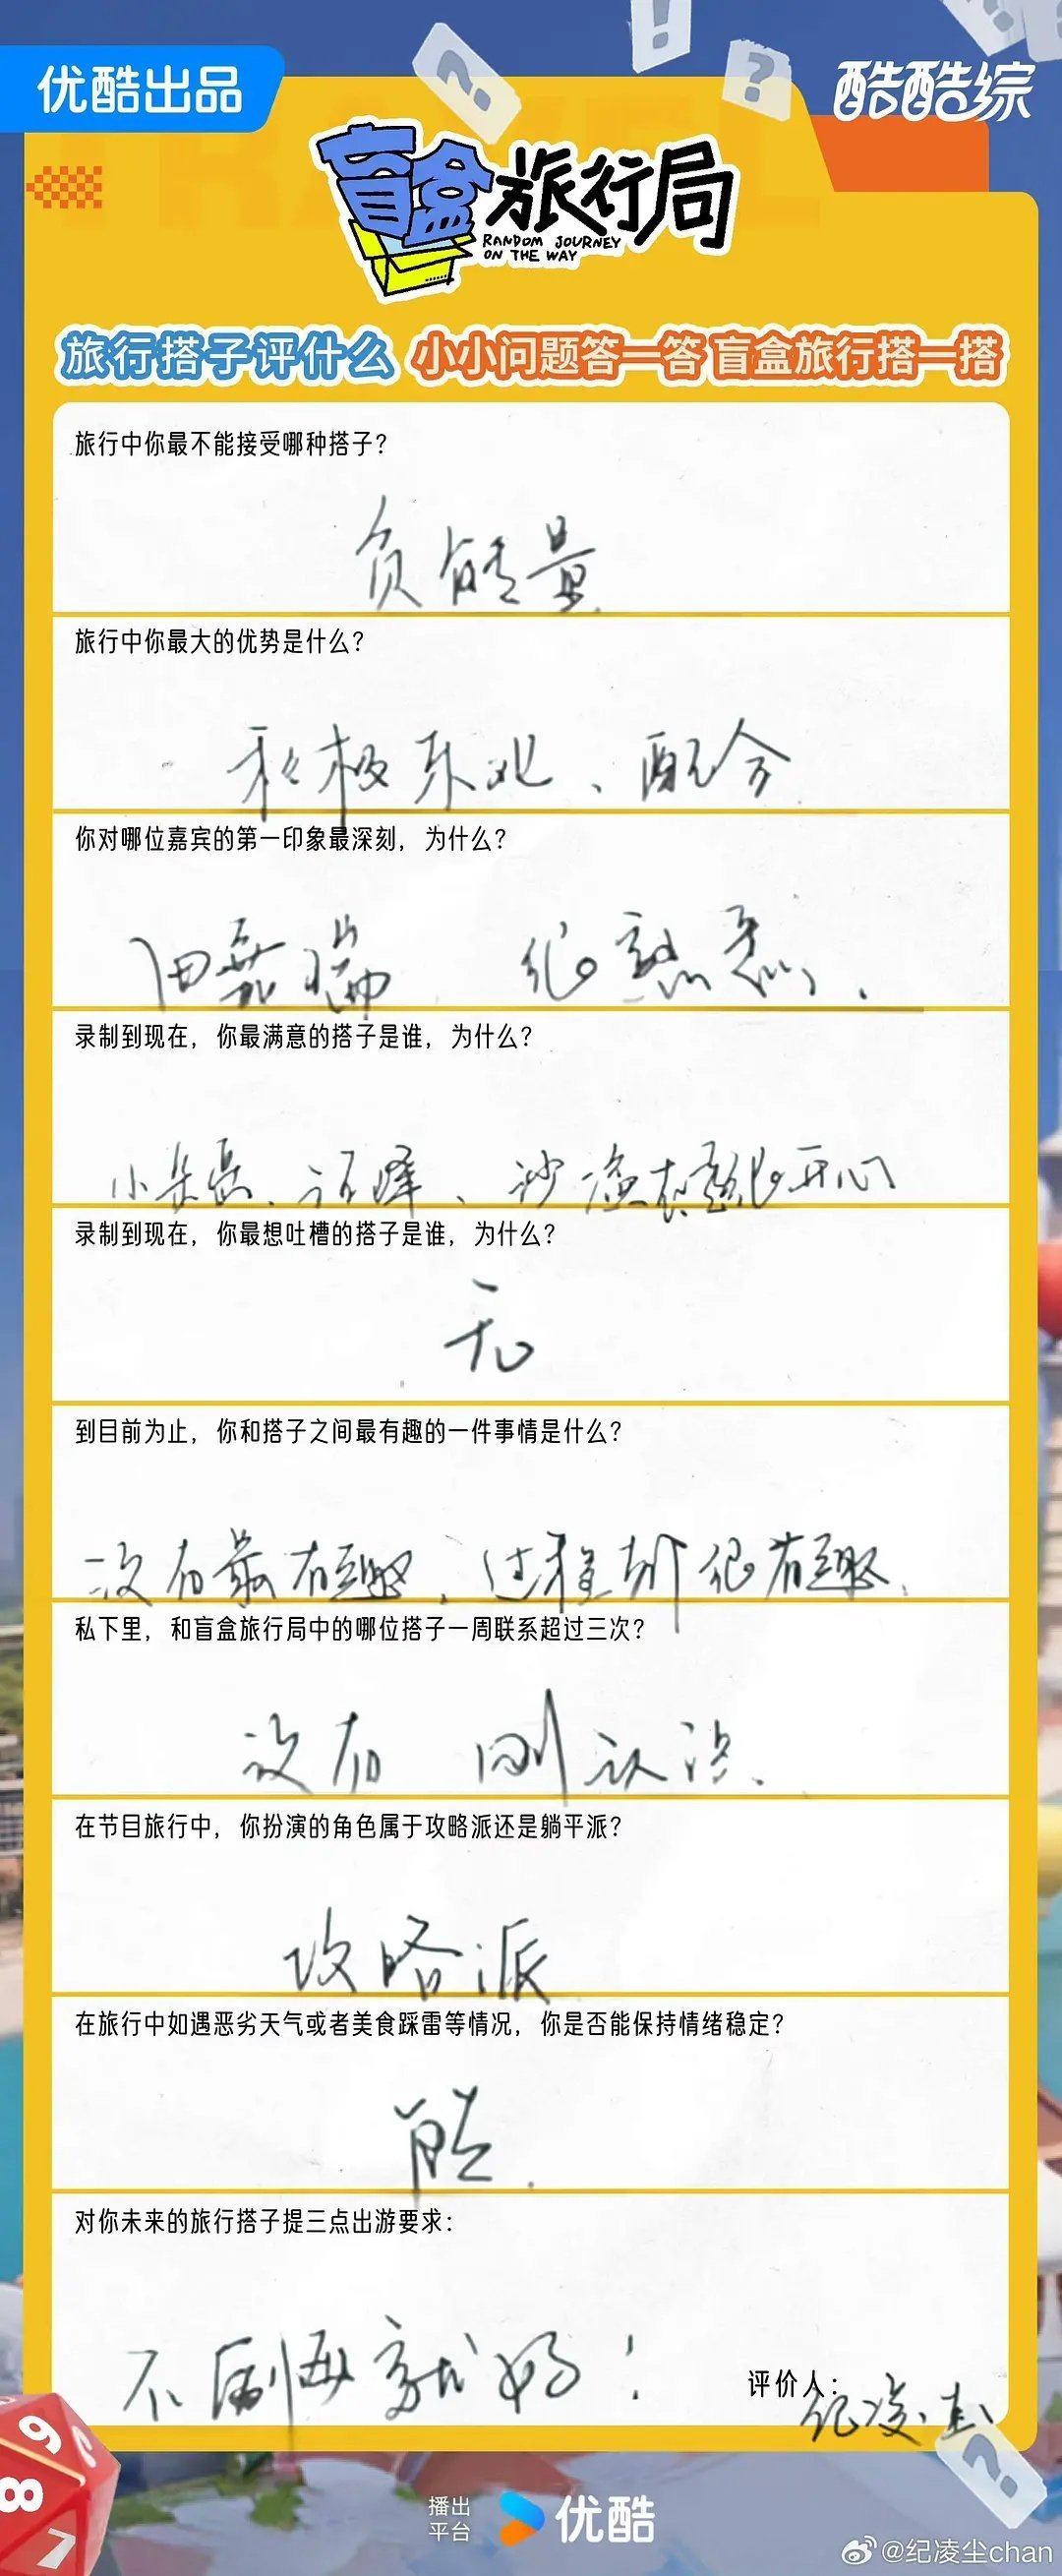 优酷出品
酷酷综
盲盒旅行局
RANDOM JOURNEY
ON THE WAY
旅行搭子评什么 小小问题答一答 盲盒旅行搭一搭
旅行中你最不能接受哪种搭子?
负能量
旅行中你最大的优势是什么?
积极乐观、配合
你对哪位嘉宾的第一印象最深刻，为什么?
田嘉瑞 很熟悉.
录制到现在，你最满意的搭子是谁，为什么?
小朵 、沙溢 都 很开心
录制到现在，你最想吐槽的搭子是谁，为什么?
无
到目前为止，你和搭子之间最有趣的一件事情是什么?
没有最有趣，过程都很有趣.
私下里，和盲盒旅行局中的哪位搭子一周联系超过三次?
没有 刚认识.
在节目旅行中，你扮演的角色属于攻略派还是躺平派?
攻略派
在旅行中如遇恶劣天气或者美食踩雷等情况，你是否能保持情绪稳定?
能.
对你未来的旅行搭子提三点出游要求:
不 就好!
评价人:
纪凌尘
9
8
7
播出
平台
优酷
@纪凌尘chan